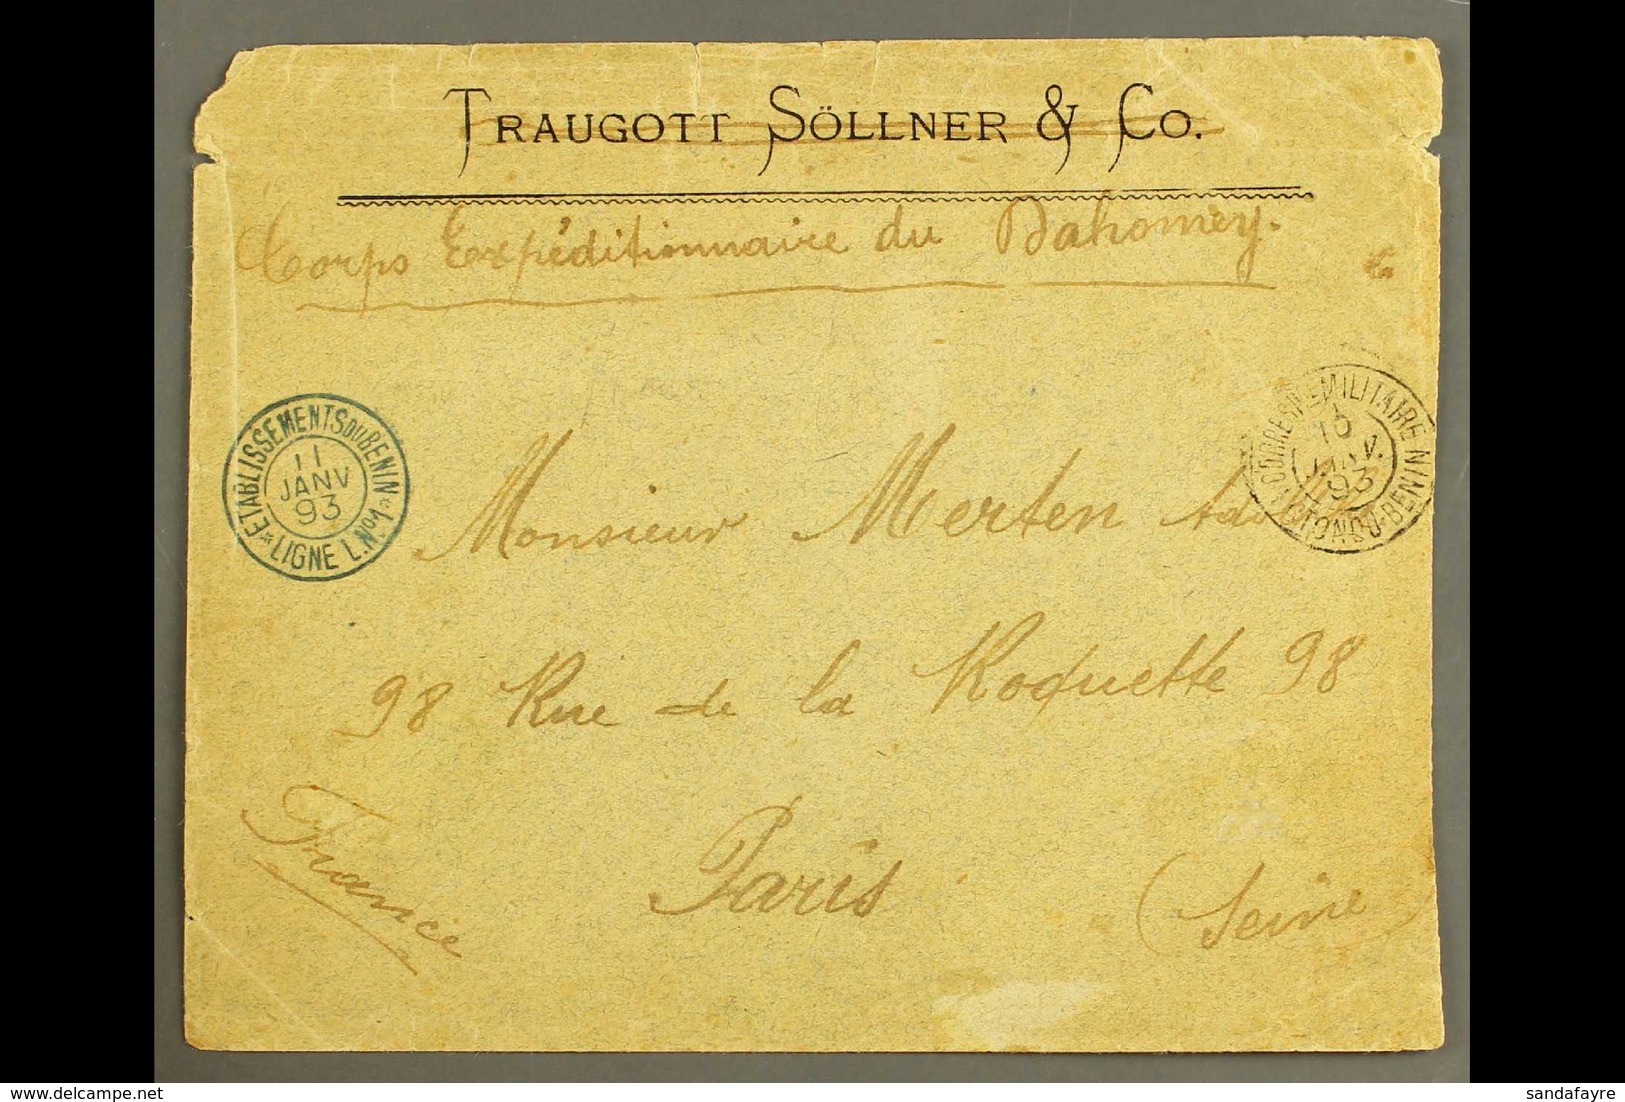 TRAUGOTT SÖLLNER & CO.
Corps Expéditionnaire du Dahomey.
ETABLISSEMENTS DU BENIN
11
JANV
93
LIGNE L. No 1
CORRESP. MILITAIRE
JANV.
93
BENIN
Monsieur Merten
98 Rue de la Roquette 98
France
Paris
(Seine)
www.delcampe.net
sandafayre